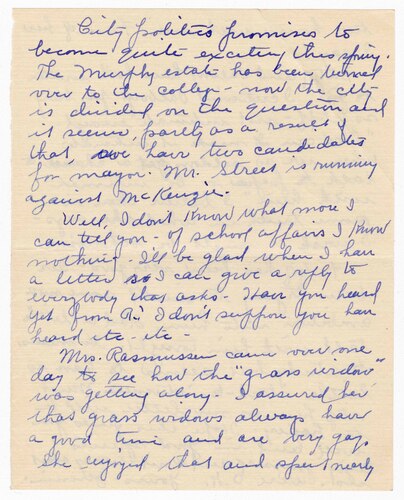 City politics promises to
become quite exciting this spring.
The Murphy estate has been turned
over to the college - now the city
is divided on the question and
it seems, partly as a result of
that, we have two candidates
for mayor. Mr. Street is running
against McKenzie.
Well, I don't know what more I
can tell you - of school affairs I know
nothing - I'll be glad when I have
a letter so I can give a reply to
everybody that asks - Have you heard
yet from R? I don't suppose you have
heard etc - etc -
Mrs. Rasmussen came over one
day to see how the "grass widow"
was getting along - I assured her
that grass widows always have
a good time and are very gay.
She enjoyed that and spent nearly